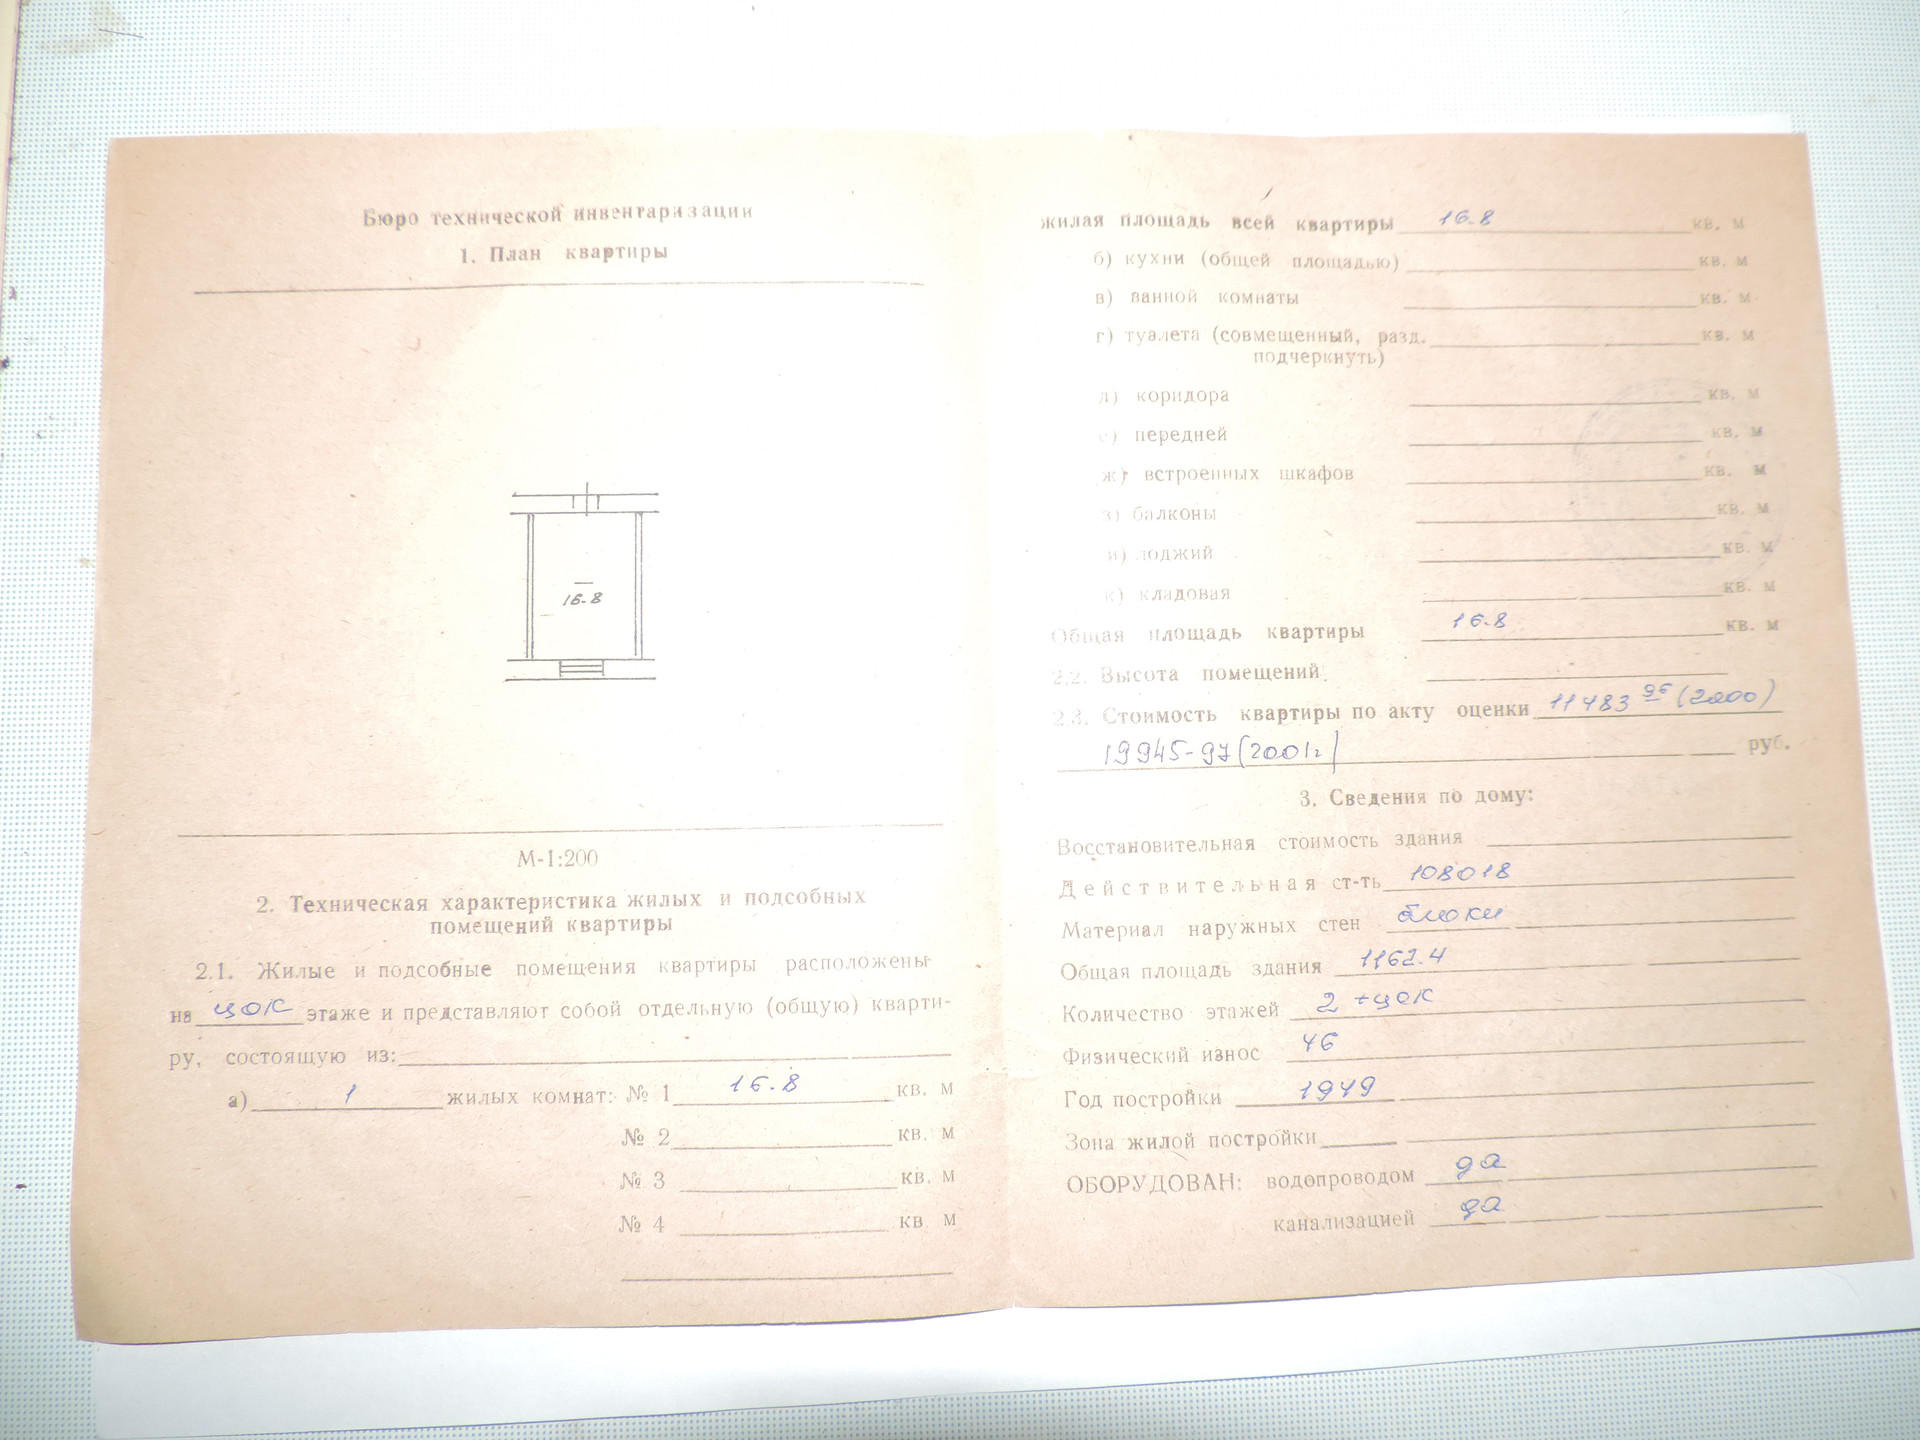 Бюро технической инвентаризации
1. План квартиры
16.8
М-1:200
2. Техническая характеристика жилых и подсобных
помещений квартиры
2.1. Жилые и подсобные помещения квартиры расположены
на цок этаже и представляют собой отдельную (общую) кварти-
ру, состоящую из:
а) 1 жилых комнат: № 1 16.8 кв. м
№ 2 кв. м
№ 3 кв. м
№ 4 кв м
жилая площадь всей квартиры 16.8 кв. м
б) кухни (общей площадью) кв. м
в) ванной комнаты кв. м
г) туалета (совмещенный, разд. кв. м
подчеркнуть)
д) коридора кв. м
е) передней кв. м
ж) встроенных шкафов кв. м
з) балконы кв. м
и) лоджий кв. м
к) кладовая кв. м
Общая площадь квартиры 16.8 кв. м
2.2. Высота помещений.
2.3. Стоимость квартиры по акту оценки 11483 96 (2000)
19945-97 (2001г) руб.
3. Сведения по дому:
Восстановительная стоимость здания
Действительная ст-ть 108018
Материал наружных стен блоки
Общая площадь здания 1162.4
Количество этажей 2 +цок
Физический износ 46
Год постройки 1949
Зона жилой постройки
ОБОРУДОВАН: водопроводом да
канализацией да